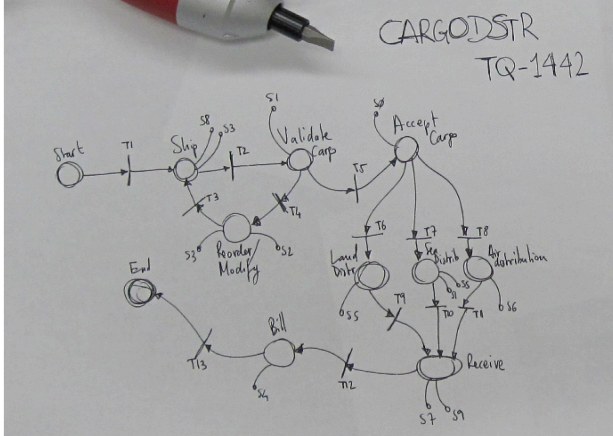 CARGODSTR
TQ-1442
Start
T1
Ship
S8
S3
T2
S1
Validate
Cargo
T5
S0
Accept
Cargo
T3
T4
Reorder
Modify
S3
S2
T6
T7
T8
Land
Distr
S5
Distrib
S5
S1
Air
distribution
S6
T9
T10
T11
Receive
S7
S9
T12
Bill
S4
T13
End